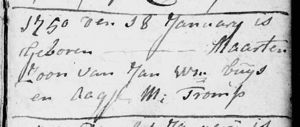 1750 den 18 January is
geboren Maarten
Zoon van Jan Wm buijs
en aagje M: Tromp